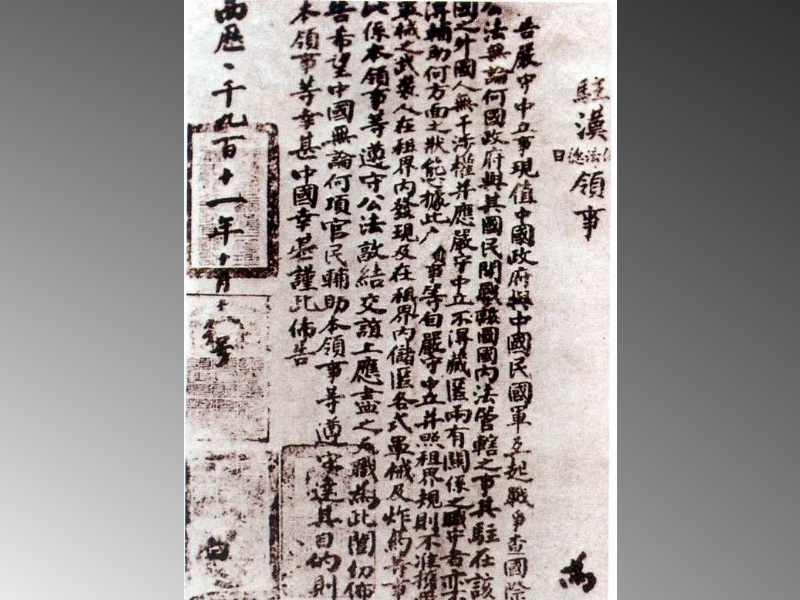 駐漢法領事 為
告嚴守中立事現值中國政府與中國民國軍互起戰爭查國際
公法無論何國政府與其國民開戰該國國內法管轄之事其駐在該
國之外國人無干涉權并應嚴守中立不得藏匿兩有關係之職守者亦不
得輔助何方面之狀態據此事等自嚴守中立并照租界規則不准攜
軍械之武裝人在租界內發現及在租界內儲匿各式軍械及炸藥等事
此係本領事等遵守公法敦結交誼上應盡之天職為此闔切佈
告希望中國無論何項官民輔助本領事等遵守達其目的則
本領事等幸甚中國幸甚謹此佈告
西歷一千九百十一年十月十號